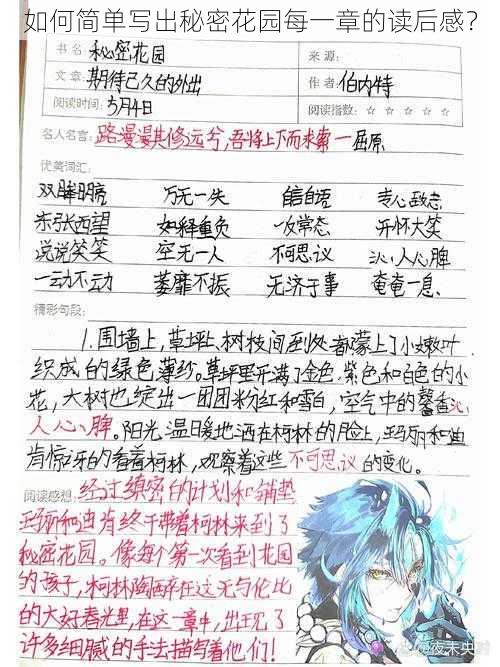 如何简单写出秘密花园每一章的读后感？
书名 秘密花园 来源：
文章：期待已久的外出 作者：伯内特
阅读时间：5月4日 阅读指数：☆ ☆ ☆ ☆ ☆
名人名言：路漫漫其修远兮，吾将上下而求索 — 屈原
优美词汇：
双眸明亮 万无一失 自言自语 专心致志
东张西望 如释重负 一反常态 开怀大笑
说说笑笑 空无一人 不可思议 沁人心脾
一动不动 萎靡不振 无济于事 奄奄一息
精彩句段：
1.围墙上，草坪上、树枝间到处都蒙上了小嫩叶
织成的绿色薄纱。草坪里开满了金色、紫色和白色的小
花，大树也绽出一团团粉红和雪白，空气中的馨香沁
人心脾。阳光温暖地洒在柯林的脸上，玛丽和迪
肯惊讶的看着柯林，观察着这些不可思议的变化。
阅读感想：经过缜密的计划和铺垫
玛丽和迪肯终于带着柯林来到了
秘密花园。像每个第一次看到花园
的孩子，柯林陶醉在这无与伦比
的大好春光里，在这一章中，出现了
许多细腻的手法描写着他们！
夜未央